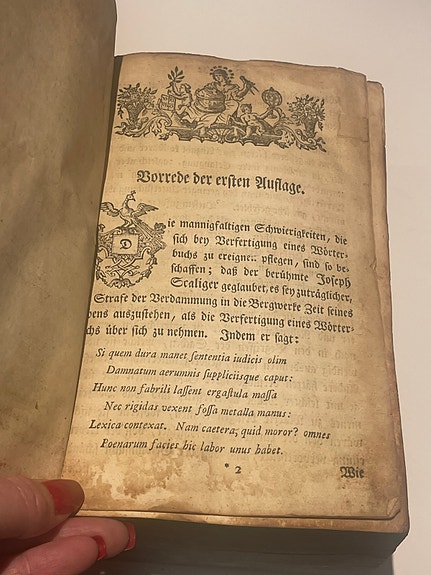 Vorrede der ersten Auflage.
Die mannigfaltigen Schwierigkeiten, die
sich bey Verfertigung eines Wörter-
buchs zu ereignen pflegen, sind so be-
schaffen: daß der berühmte Joseph
Scaliger geglaubet, es sey zuträglicher,
Strafe der Verdammung in die Bergwerke Zeit seines
bens auszustehen, als die Verfertigung eines Wörter-
chs über sich zu nehmen. Indem er sagt:
Si quem dura manet ſententia iudicis olim
Damnatum aerumnis ſuppliciisque caput:
Hunc non fabrili laſſent ergaſtula maſſa
Nec rigidas vexent foſſa metalla manus:
Lexica contexat. Nam caetera, quid moror? omnes
Poenarum facies hic labor unus habet.
* 2
Wie